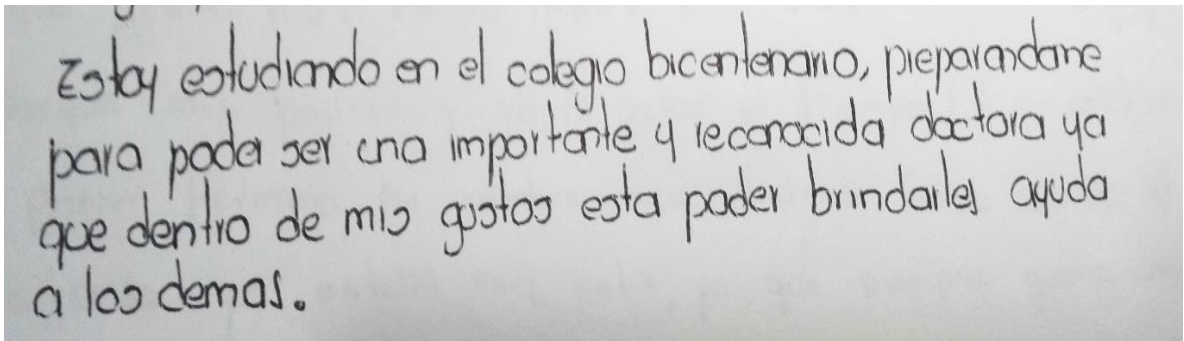 Estoy estudiando en el colegio bicentenario, preparandome
para poder ser una importante y reconocida doctora ya
que dentro de mis gustos esta poder brindarles ayuda
a los demas.